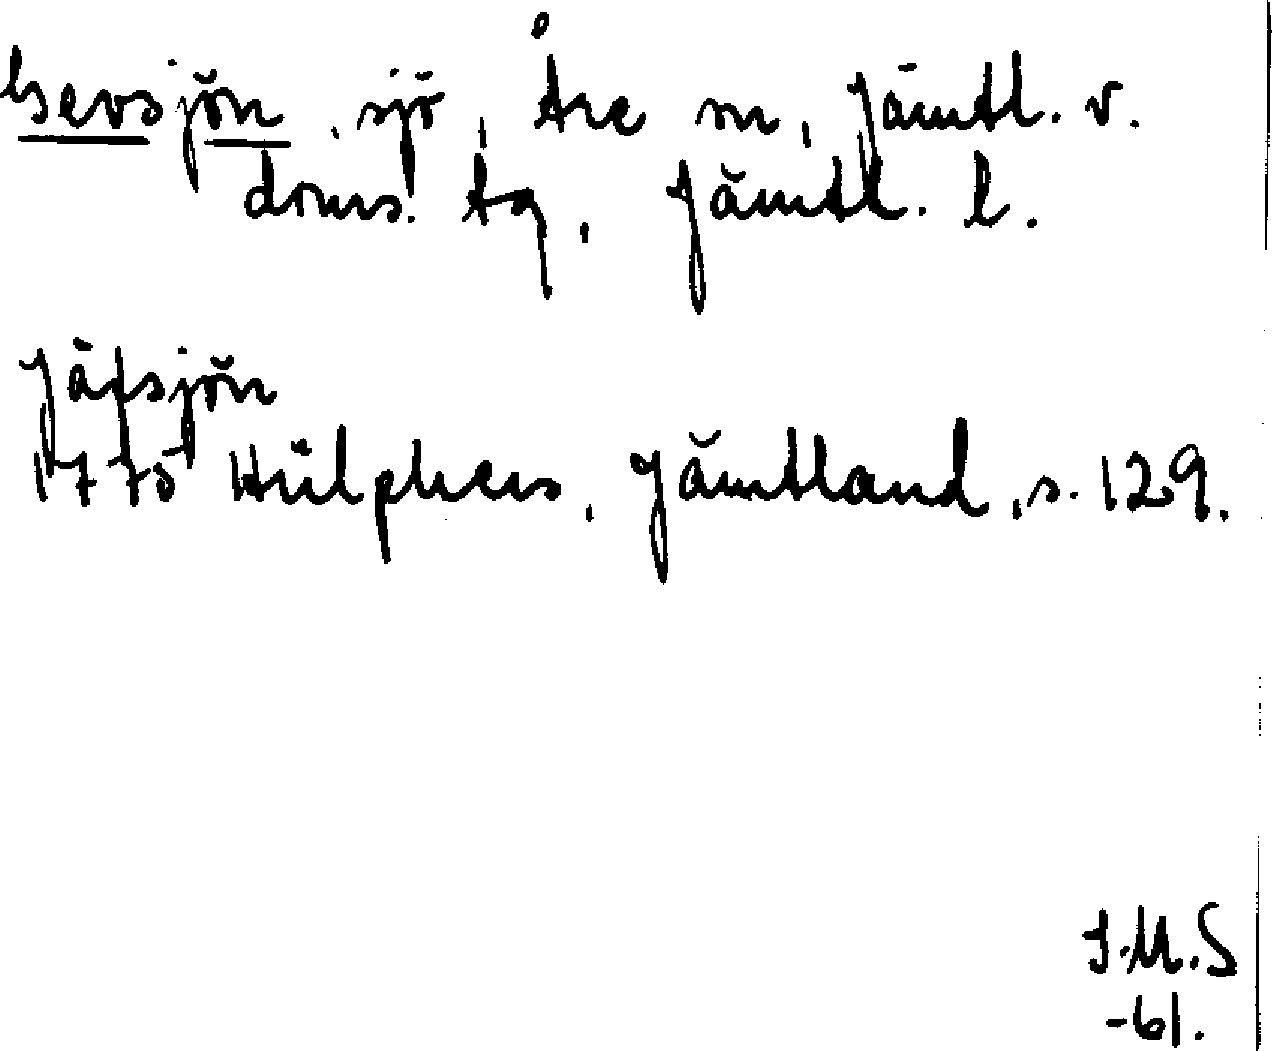 Gevsjön, sjö, Åre sn, Jämtl. v.
doms. tg, Jämtl. l.
Jäfsjön
1775 Hülphers, Jämtland, s. 129.
I.M.S
-61.